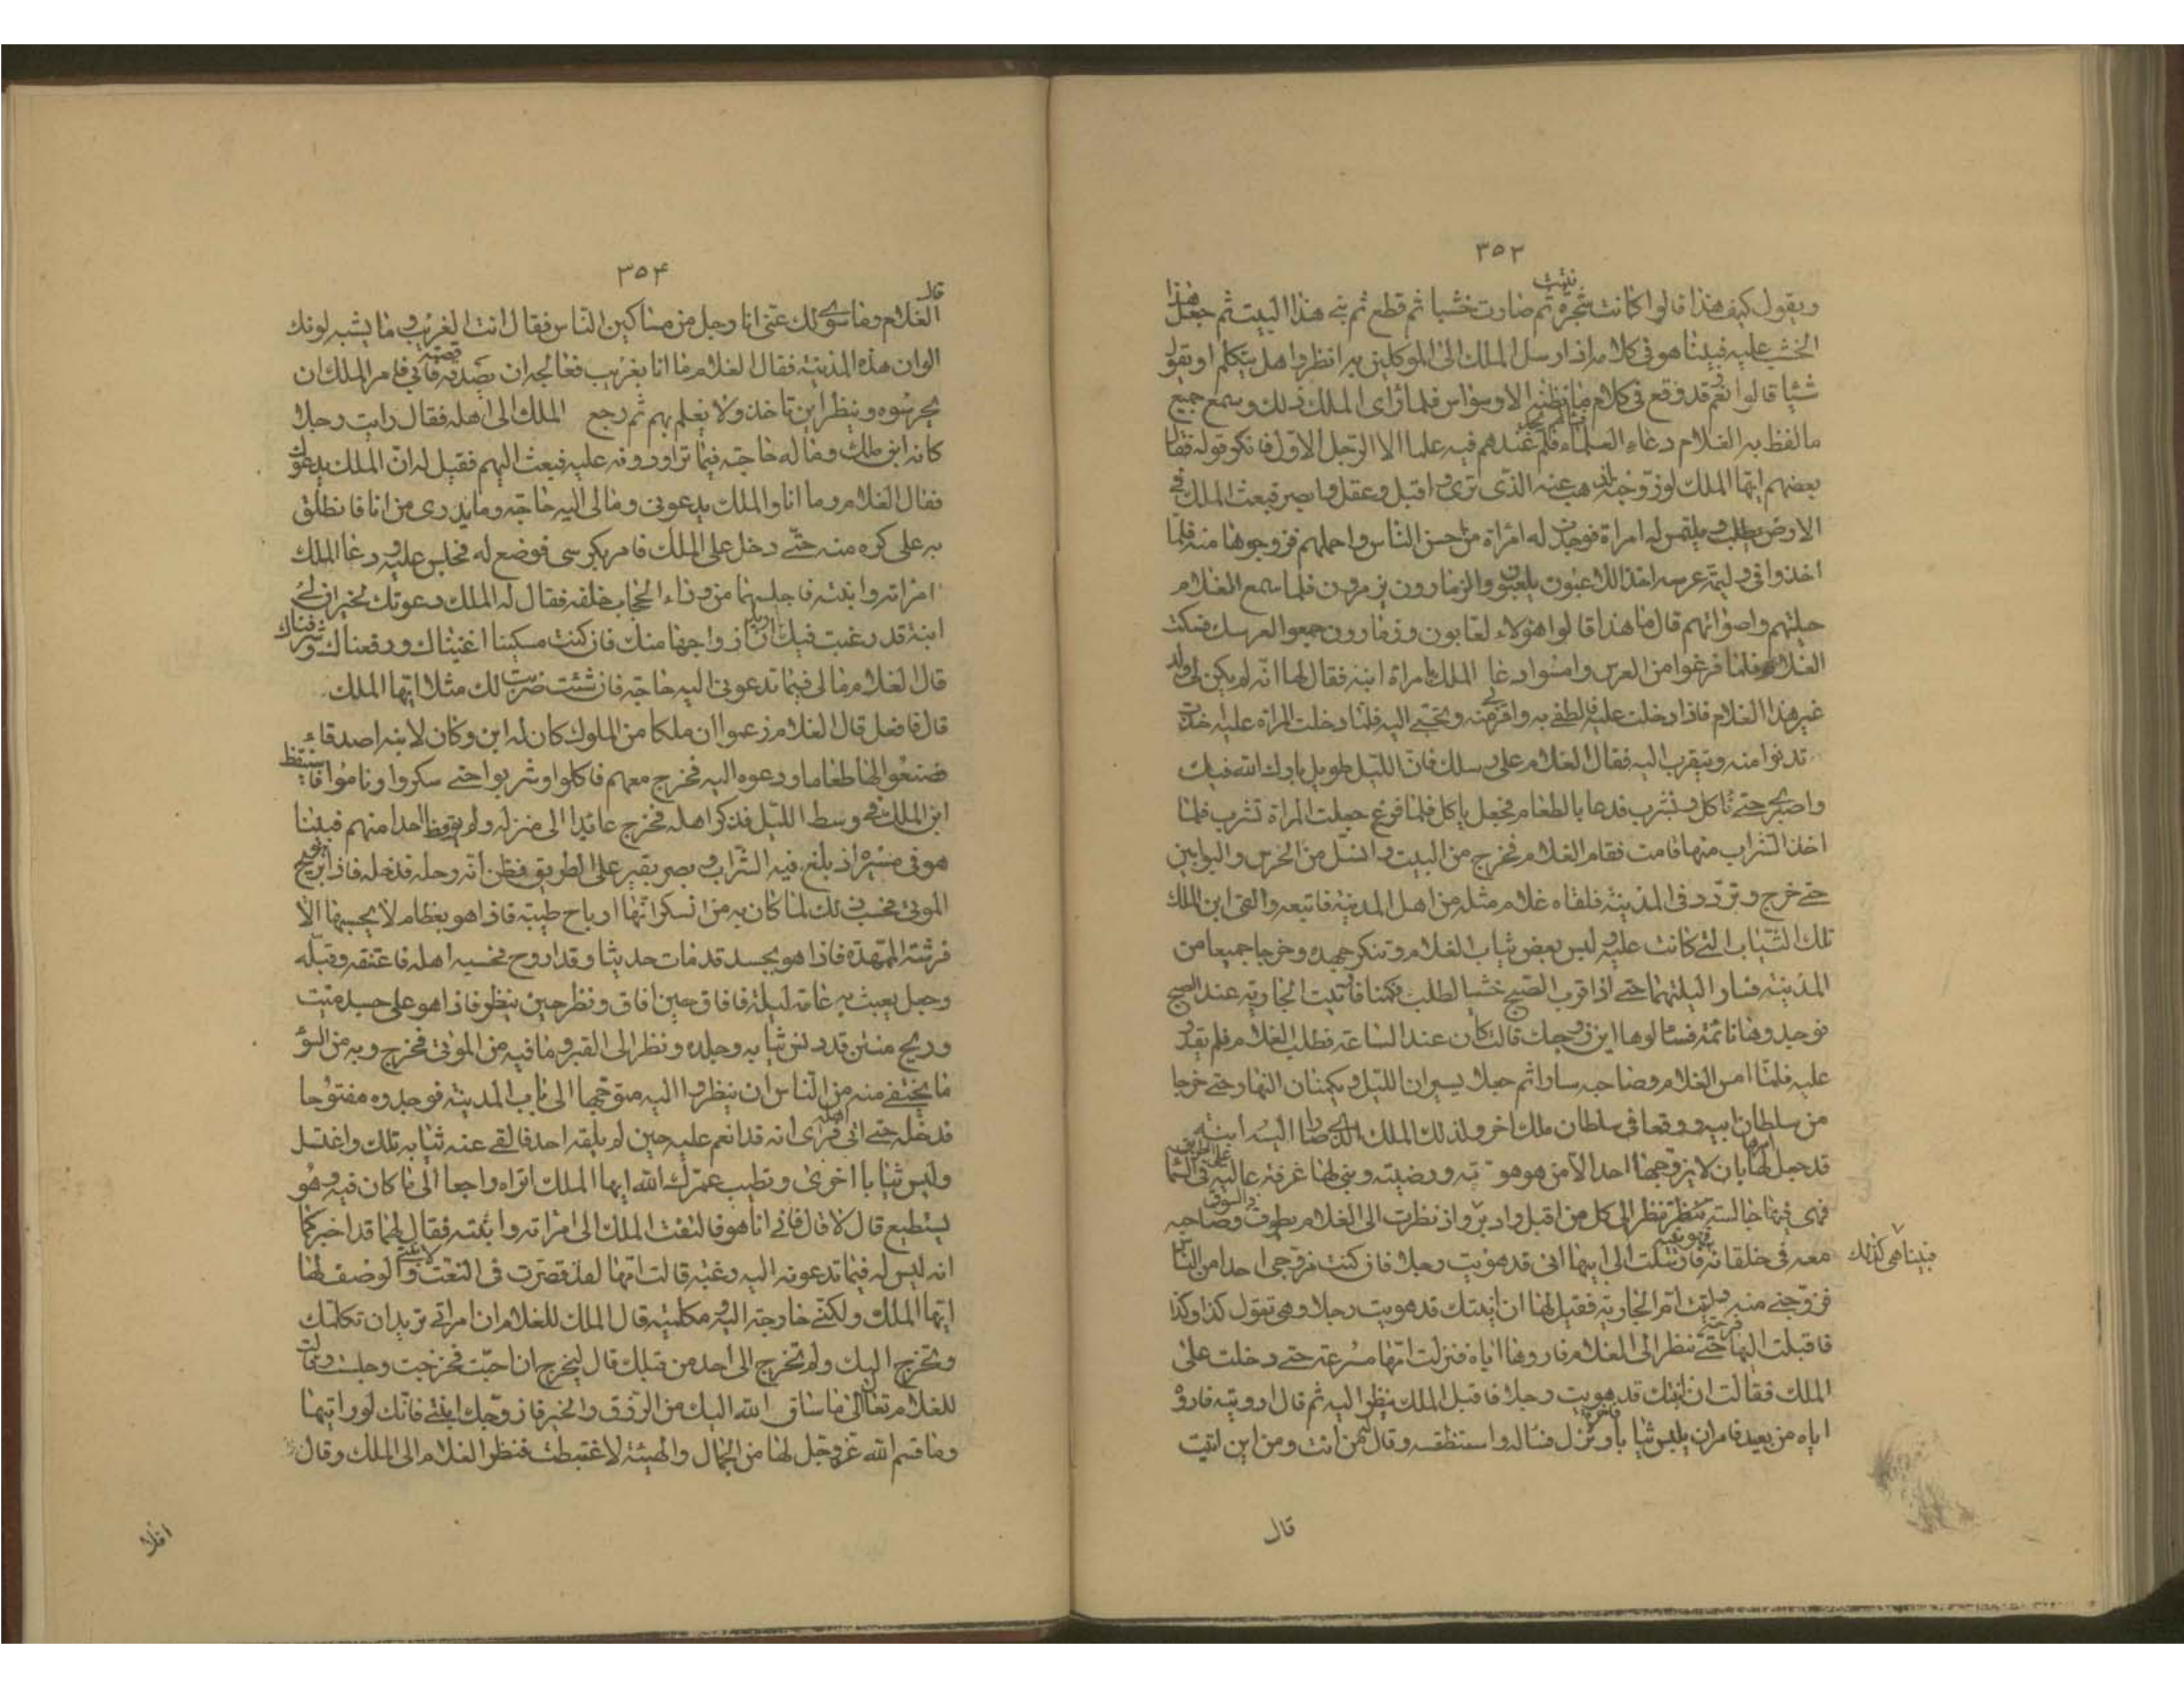 ٣٥٣
ويقول كيف هذا قالوا كانت شجرة نبتت ثم صارت خشبا ثم قطع ثم بنى هذا البيت ثم جعل هذا
الخشب عليه فبينا هو في كلامه اذ ارسل الملك الى الموكلين به انظروا هل يتكلم او يقول
شيئا قالوا نعم قد وقع في كلام ما نظنه الا وسواس فلما راى الملك ذلك وسمع جميع
ما لفظ به الغلام دعا العلماء فسالهم فلم يجد عندهم فيه علما الا الرجل الاول فانكر قوله فقال
بعضهم ايها الملك لو زوجته لذهب عنه الذى ترى واقبل وعقل وابصر فبعث الملك في
الارض يطلب ويلتمس له امراة فوجدت له امراة من احسن الناس واجملهم فزوجوها منه فلما
اخذوا في وليمة عرسه اخذ اللاعبون يلعبون والزمارون يزمرون فلما سمع الغلام
جلبتهم واصواتهم قال ما هذا قالوا هؤلاء لعابون وزمارون جمعوا لعرسك فسكت
الغلام فلما فرغوا من العرس وامسوا دعا الملك بامراة ابنه فقال لها انه لم يكن لي ولد
غير هذا الغلام فاذا دخلت عليه فالطفي به واقربي منه وتحببي اليه فلما دخلت المراة عليه اخذت
تدنوا منه وتتقرب اليه فقال الغلام على رسلك فان الليل طويل بارك الله فيك
واصبر حتى ناكل ونشرب فدعا بالطعام فجعل ياكل فلما فرغ جعلت المراة تشرب فلما
اخذ الشراب منها قامت فقام الغلام فخرج من البيت وانسل من الحرس والبوابين
حتى خرج وتردد في المدينة فلقاه غلام مثله من اهل المدينة فاتبعه والقى ابن الملك
تلك الثياب التى كانت عليه ولبس بعض ثياب الغلام وتنكر جهده وخرجا جميعا من
المدينة فسارا ليلتهما حتى اذا قرب الصبح خشيا الطلب فكمنا فاتيت الجارية عند الصبح
فوجدوها نائمة فسالوها اين زوجك قالت كان عندى الساعة فطلب الغلام فلم يقدر
عليه فلما امسى الغلام وصاحبه سارا ثم جعلا يسيران الليل ويكمنان النهار حتى خرجا
من سلطان ابيه ووقعا في سلطان ملك اخر ولذلك الملك الذى صارا اليه ابنة
قد جعل لها ابوها بان لا يزوجها احدا الا من هو هويته ورضيته وبنى لها غرفة عالية في السماء على الطريق
فهي فيها جالسة تنظر الى كل من اقبل وادبر واذ نظرت الى الغلام يطوف بالسوق وصاحبه
فبينا هي كذلك
معه في خلقانه فارسلت الى ابيها انى قد هويت رجلا فان كنت مزوجى احدا من الناس
فزوجنى منه واتيت ام الجارية فقيل لها ان ابنتك قد هويت رجلا وهي تقول كذا وكذا
فاقبلت اليها فرحة حتى تنظر الى الغلام فاروها اياه فنزلت امها مسرعة حتى دخلت على
الملك فقالت ان ابنتك قد هويت رجلا فاقبل الملك ينظر اليه ثم قال اروينه فاروه
اياه من بعيد فامر ان يلبس ثيابا اخرى ونزل فساله واستنطقه وقال من انت ومن اين اتيت
قال
٣٥۴
قال الغلام وما سؤالك عني انا رجل من مساكين الناس فقال انت الغريب وما يشبه لونك
الوان هذه المدينة فقال الغلام ما انا بغريب فعالجه ان يصدقه قصته فابى فامر الملك ان
يحرسوه وينظر اين تاخذ ولا يعلم بهم ثم رجع الملك الى اهله فقال رايت رجلا
كانه ابن ملك وما له حاجة فيما تراودونه عليه فبعث اليهم فقيل له ان الملك يدعوك
فقال الغلام وما انا والملك يدعونى وما لى اليه حاجة وما يدرى من انا فانطلق
به على كره منه حتى دخل على الملك فامر بكرسى فوضع له فجلس عليه ودعا الملك
امراته وابنته فاجلسهما من وراء الحجاب خلفه فقال له الملك دعوتك لخير ان لى
ابنة قد رغبت فيك اريد ان ازواجها منك فان كنت مسكينا اغنيناك ورفعناك وشرفناك
قال الغلام ما لى فيما تدعونى اليه حاجة فان شئت ضربت لك مثلا ايها الملك
قال فافعل قال الغلام زعموا ان ملكا من الملوك كان له ابن وكان لابنه اصدقاء
فصنعوا لها طعاما ودعوه اليه فخرج معهم فاكلوا وشربوا حتى سكروا وناموا فاستيقظ
ابن الملك في وسط الليل فذكر اهله فخرج عائدا الى منزله ولم يوقظ احدا منهم فبينا
هو في مسيره اذ بلغ فيه الشراب وبصر بقبر على الطريق فظن انه رحله فدخله فاذا هو بريح
الموتى فحسب ذلك لما كان به من السكر انها ارياح طيبة فاذا هو بعظام لا يحسبها الا
فرشته الممهدة فاذا هو بجسد قد مات حديثا وقد اروح فحسبه اهله فاعتنقه وقبله
وجعل يعبث به عامة ليله فافاق حين افاق ونظر حين ينظر فاذا هو على جسد ميت
وريح منتن قد دنس ثيابه وجلده ونظر الى القبر وما فيه من الموتى فخرج وبه من السوء
ما يختفي منه من الناس ان ينظروا اليه متوجها الى باب المدينة فوجدوه مفتوحا
فدخله حتى اتى اهله فراى انه قد انعم عليه حين لم يلقه احد فالقى عنه ثيابه تلك واغتسل
ولبس ثيابا اخرى وتطيب عمرك الله ايها الملك اتراه راجعا الى ما كان فيه وهو
يستطيع قال لا قال فانى انا هو فالتفت الملك الى امراته وابنته فقال لهما قد اخبرتكما
انه ليس له فيما تدعونه اليه رغبة قالت امها لقد قصرت في النعت لابنتى والوصف لها
ايها الملك ولكنى خارجة اليه ومكلمته قال الملك للغلام ان امراتى تريد ان تكلمك
وتخرج اليك ولم تخرج الى احد من قبلك قال لتخرج ان احبت فخرجت وجلست وقالت
للغلام تعال الى ما ساق الله اليك من الرزق والخير فازوجك ابنتى فانك لو رايتها
وما قسم الله عز وجل لها من الجمال والهيئة لاغتبطت فنظر الغلام الى الملك وقال
افلا